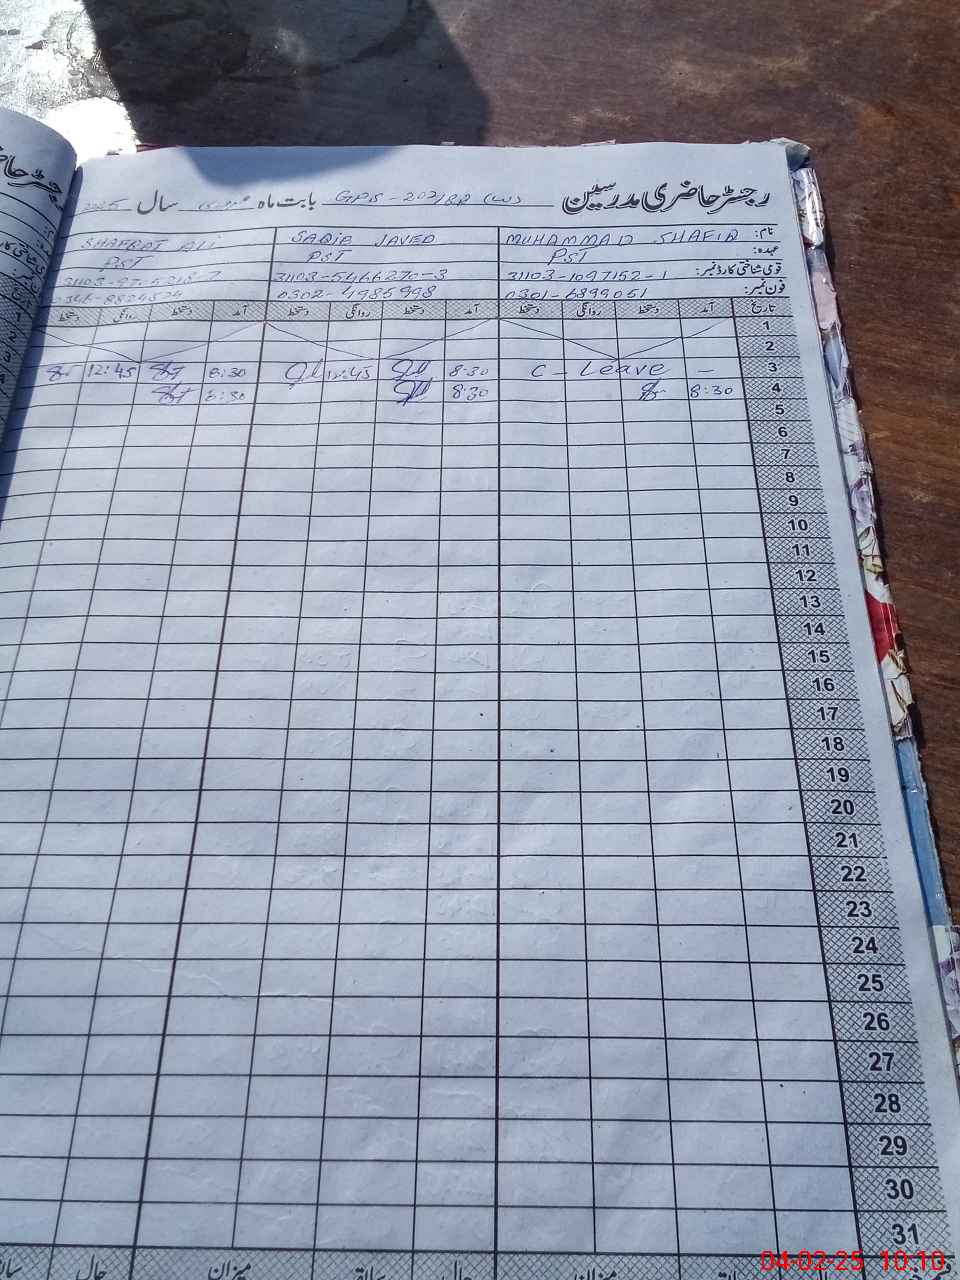 رجسٹر حاضری مدرسین بابت ماہ GPS - 203/8R (W) سال 2025
نام: MUHAMMAD SHAFIQ SAQIB JAVED SHAFQAT ALI
عہدہ: PST PST PST
قومی شناختی کارڈ نمبر: 31103-1097152-1 31103-5466270-3
فون نمبر: 0301-6899051 0302-4985998
تاریخ آمد دستخط روانگی دستخط آمد دستخط روانگی دستخط آمد دستخط روانگی دستخط
1
2
3 C - Leave - 8:30 12:45 8:30 12:45
4 8:30 8:30 8:30
5
6
7
8
9
10
11
12
13
14
15
16
17
18
19
20
21
22
23
24
25
26
27
28
29
30
31
میزان حال
04-02-25 10:10